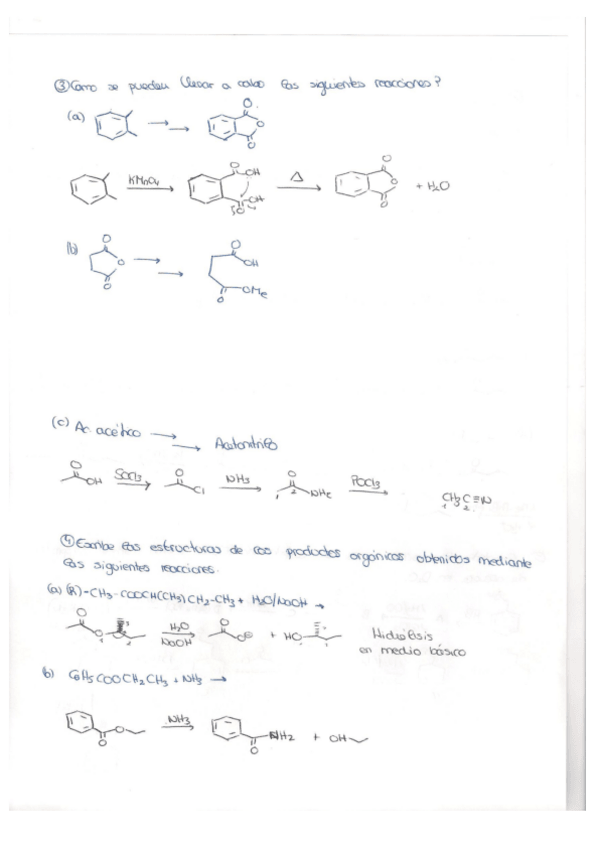 ③ Como se pueden llevar a cabo las siguientes reacciones?
(a)
O O O
KMnO4 O OH OH O Δ O O O + H2O
(b)
O O O O OH OMe O
(c) Ac. acético → → Acetonitrilo
O OH SOCl2 O Cl NH3 O NH2 POCl3 CH3C≡N
1 2 1 2
④ Escribe las estructuras de los productos orgánicos obtenidos mediante
las siguientes reacciones.
(a) (R)-CH3-COOCH(CH3)CH2-CH3 + H2O/NaOH →
O O H2O NaOH O O⊖ + HO Hidrólisis
en medio básico
b) C6H5COOCH2CH3 + NH3 →
O O NH3 NH2 O + OH